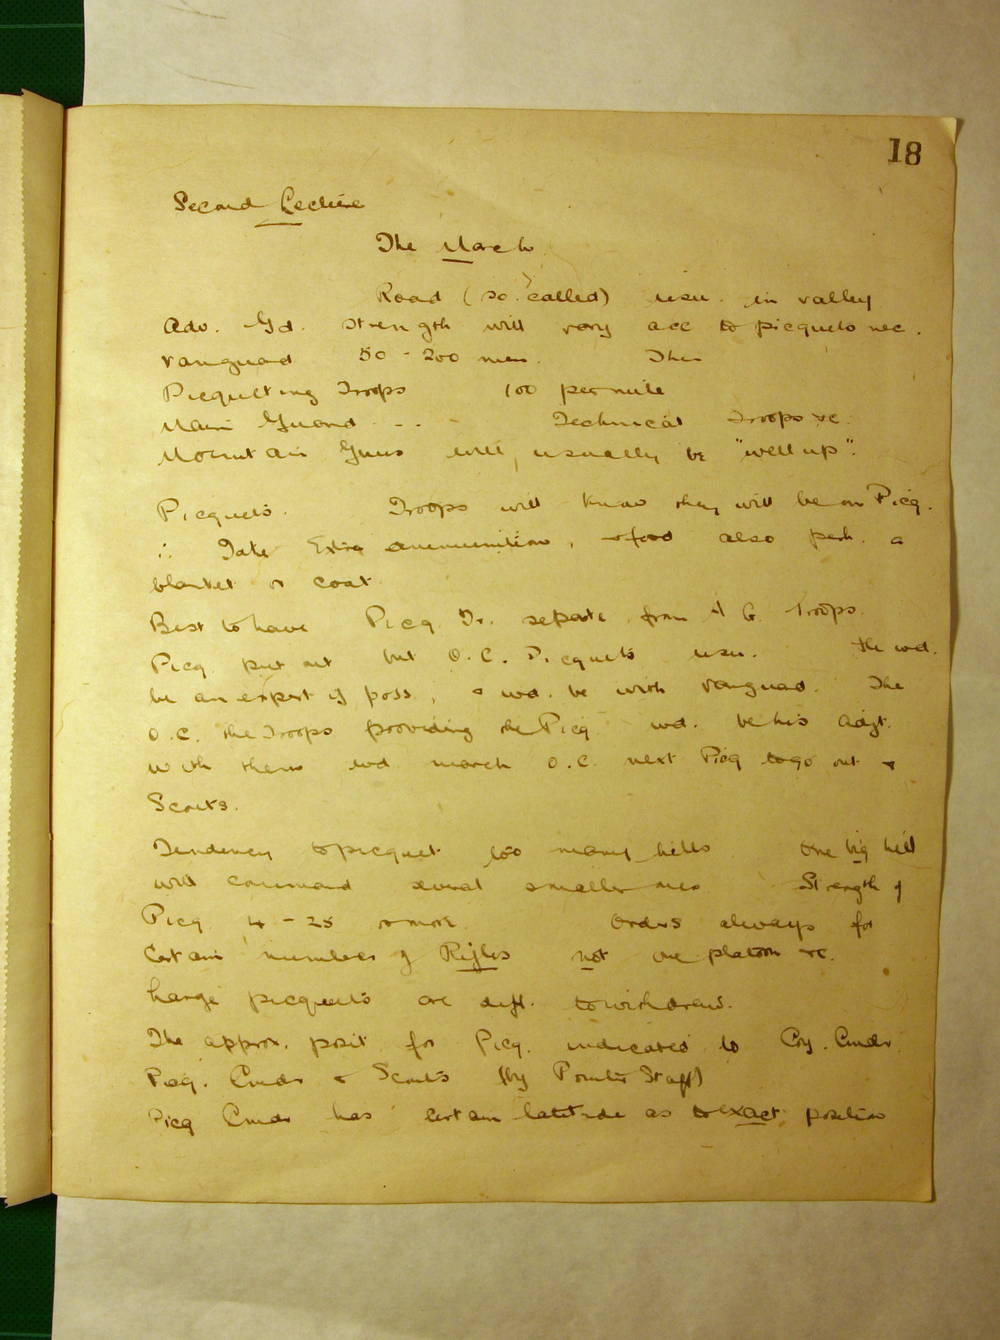 18
Second Lecture
The March
Road (so called) usu. in valley
Adv. Gd. strength will vary acc to picquets nec.
Vanguard 50 - 200 men. Then
Picquetting Troops 100 per mile
Main Guard - - - Technical Troops &c.
Mountain Guns will, usually be "well up".
Picquets. Troops will know they will be on Picq.
∴ Take Extra ammunition, & food also perh. a
blanket or coat
Best to have Picq. Tr. separate from A G Troops.
Picq. put out but O.C. Picquets usu. He wd.
be an expert if poss, & wd. be with Vanguard. The
O.C. the Troops providing the Picq wd. be his Adjt.
With them wd march O.C. next Picq to go out &
Scouts.
Tendency to picquet too many hills One big hill
will command several smaller ones Strength of
Picq 4 - 25 or more. Orders always for
Certain number of Rifles not one platoon &c.
Large picquets are diff. to withdraw.
The approx. posit. for Picq. indicated to Coy. Cmdr
Picq. Cmdr & Scouts (by Pointer Staff)
Picq Cmdr has certain latitude as to exact position